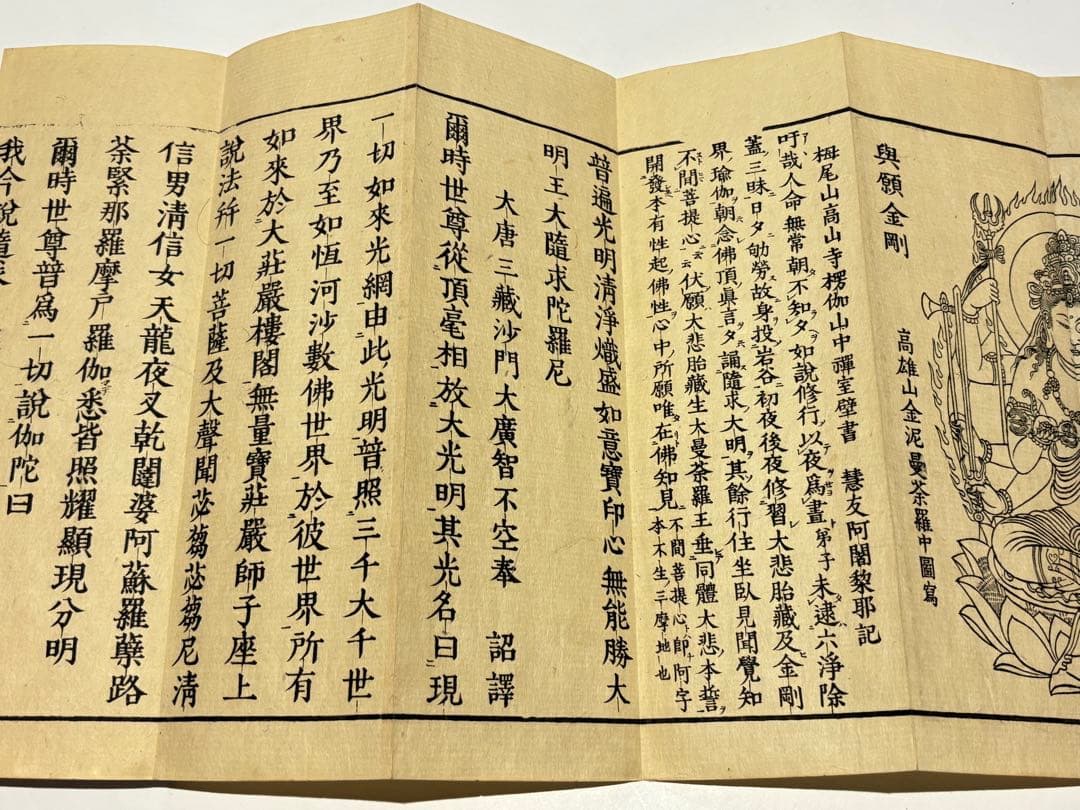 與願金剛
高雄山金泥曼荼羅中圖寫
栂尾山高山寺楞伽山中禪室壁書 慧友阿闍黎耶記
吁哉人命無常朝不知夕如說修行以夜爲晝弟子未逮六淨除
蓋三昧日夕劬勞故身投岩谷初夜後夜修習大悲胎藏及金剛
界瑜伽朝念佛頂眞言夕誦隨求大明其餘行住坐臥見聞覺知
不間菩提心云云伏願大悲胎藏生大曼荼羅王垂同體大悲本誓
開發本有性起佛性心中所願唯在佛知見不間菩提心卽阿字本不生三摩地也
普遍光明清淨熾盛如意寶印心無能勝大
明王大隨求陀羅尼
大唐三藏沙門大廣智不空奉 詔譯
爾時世尊從頂毫相放大光明其光名曰現
一切如來光網由此光明普照三千大千世
界乃至如恆河沙數佛世界於彼世界所有
如來於大莊嚴樓閣無量寶莊嚴師子座上
說法幷一切菩薩及大聲聞苾芻苾芻尼清
信男清信女天龍夜叉乾闥婆阿蘇羅蘖路
荼緊那羅摩戶羅伽悉皆照耀顯現分明
爾時世尊普爲一切說伽陀曰
我今說隨求